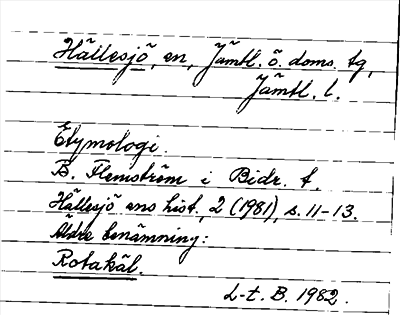 Hällesjö, en, Jämtl. ö. doms. tg,
Jämtl. l.
Etymologi.
B. Flemström i Bidr. t.
Hällesjö sns hist., 2 (1981), s. 11-13.
Äldre benämning:
Rotakäl.
L-t. B. 1982.